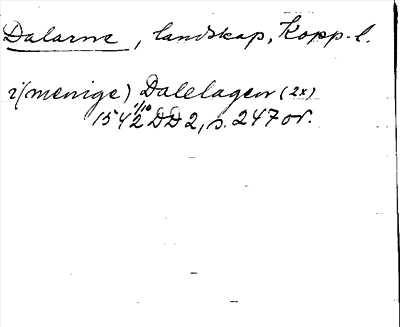 Dalarne, landskap, Kopp. l.
i (menige) Dalelagen (2x)
1542 1/10 DD2, s. 247 or.